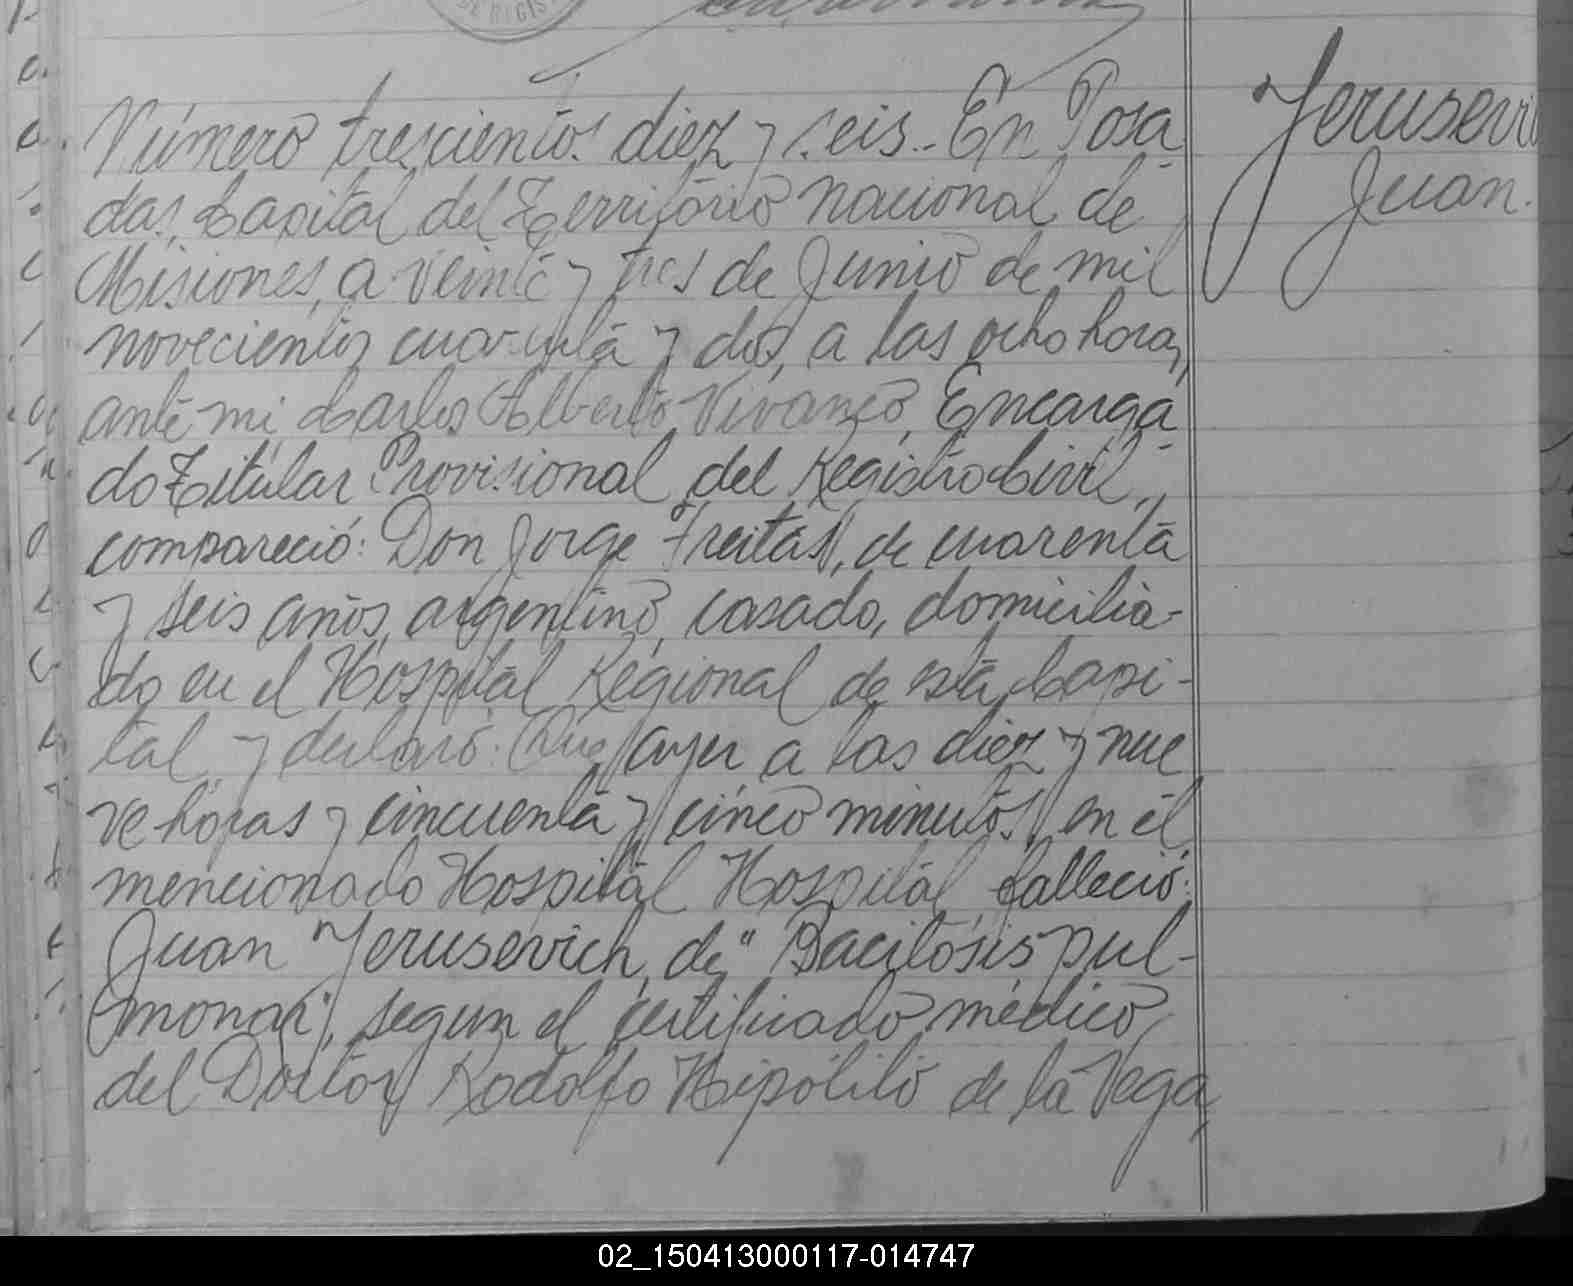 DE REGIS
Número trescientos diez y seis.- En Posa-
das, Capital del Territorio nacional de
Misiones, a veinte y tres de Junio de mil
novecientos cuarenta y dos, a las ocho horas,
ante mi Carlos Alberto Vivanco, Encarga-
do Titular Provisional del Registro Civil,
compareció: Don Jorge Freitas, de cuarenta
y seis años, argentino, casado, domicilia-
do en el Hospital Regional de esta Capi-
tal, y declaró: Que ayer a las diez y nue
ve horas y cincuenta y cinco minutos, en el
mencionado Hospital Hospital, falleció:
Juan Jerusevich, de "Bacilosis pul-
monar", segun el certificado médico
del Doctor Rodolfo Hipólito de la Vega,
Jerusevi
Juan.
02_150413000117-014747